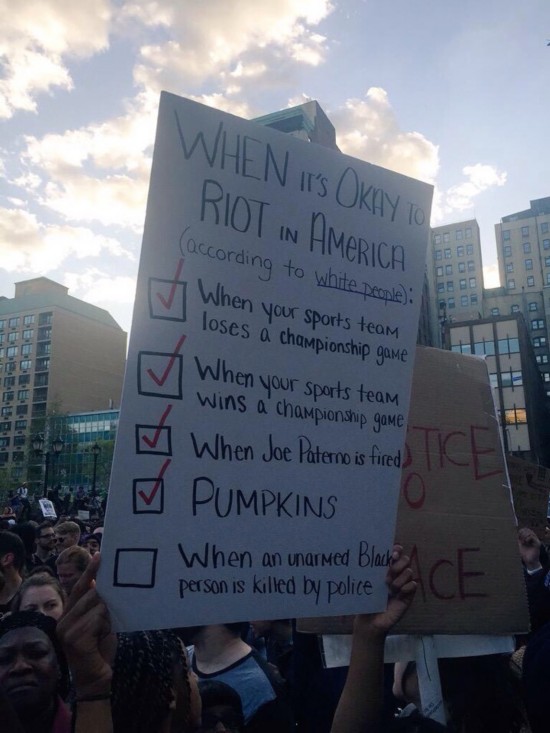 WHEN IT'S OKAY TO
RIOT IN AMERICA
(according to white people):
When your sports team
loses a championship game
When your sports team
wins a championship game
When Joe Paterno is fired
PUMPKINS
When an unarmed Black
person is killed by police
TICE
O
ACE